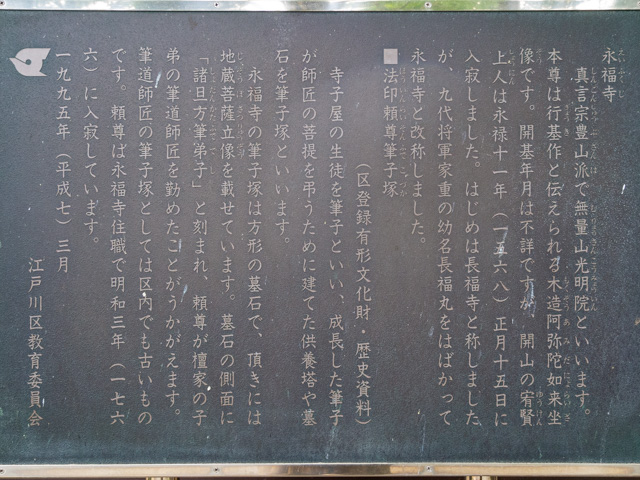 永福寺
真言宗豊山派で無量山光明院といいます。
本尊は行基作と伝えられる木造阿弥陀如来坐
像です。開基年月は不詳ですが、開山の宥賢
上人は永禄十一年（一五六八）正月十五日に
入寂しました。はじめは長福寺と称しました
が、九代将軍家重の幼名長福丸をはばかって
永福寺と改称しました。
■法印頼尊筆子塚
（区登録有形文化財・歴史資料）
寺子屋の生徒を筆子といい、成長した筆子
が師匠の菩提を弔うために建てた供養塔や墓
石を筆子塚といいます。
永福寺の筆子塚は方形の墓石で、頂きには
地蔵菩薩立像を載せています。墓石の側面に
「諸旦方筆弟子」と刻まれ、頼尊が檀家の子
弟の筆道師匠を勤めたことがうかがえます。
筆道師匠の筆子塚としては区内でも古いもの
です。頼尊は永福寺住職で明和三年（一七六
六）に入寂しています。
一九九五年（平成七）三月
江戸川区教育委員会